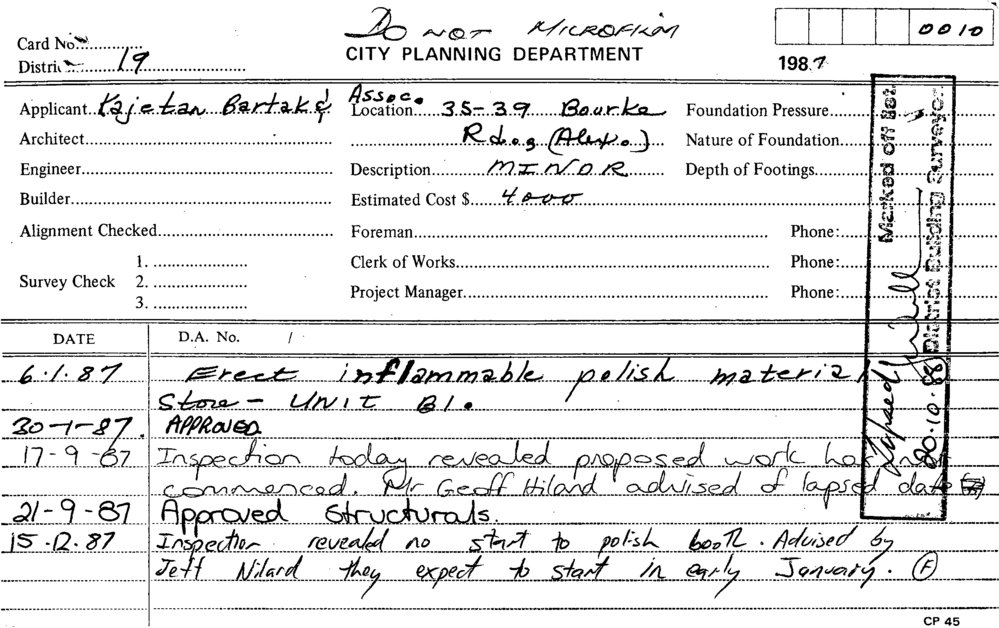 DO NOT MICROFILM
Card No.
CITY PLANNING DEPARTMENT
1987
0010
District 19
Applicant Kajetan Bartak & Assoc.
Location 35-39 Bourke
Foundation Pressure
Architect
Rd. (Alex.)
Nature of Foundation
Engineer
Description MINOR
Depth of Footings
Builder
Estimated Cost $ 4000
Alignment Checked
Foreman
Phone:
Survey Check
1.
2.
3.
Clerk of Works
Phone:
Project Manager
Phone:
Marked off list.
Lapsed
District Building Surveyor.
20.10.88
DATE
D.A. No. /
6.1.87 Erect inflammable polish material
Store - UNIT B1.
30-1-87. APPROVED
17-9-87 Inspection today revealed proposed work has not
commenced. Mr Geoff Hiland advised of lapsed date
21-9-87 Approved Structurals.
15.12.87 Inspection revealed no start to polish booth. Advised by
Jeff Nilard they expect to start in early January. (F)
CP 45